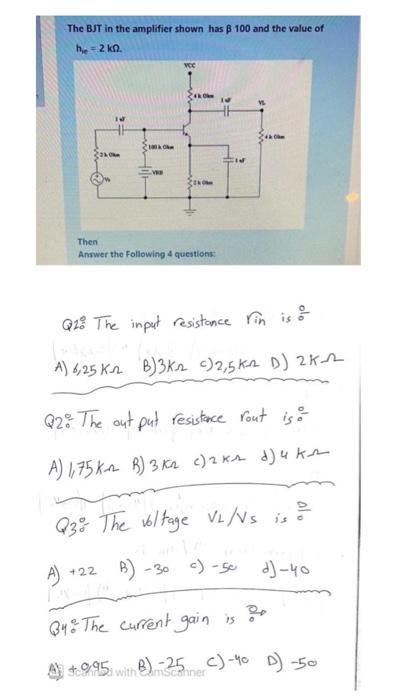 The BJT in the amplifier shown has β 100 and the value of
hie = 2 kΩ.
VCC
4 k Ohm
1 uF
VL
1 uF
100 k Ohm
4 k Ohm
2 k Ohm
VBB
1 uF
Vs
2 k Ohm
Then
Answer the Following 4 questions:
Q1: The input resistance rin is :
A) 1,25 KΩ B) 3KΩ c) 2,5 KΩ D) 2KΩ
Q2: The out put resistence rout is :
A) 1,75 kΩ B) 3 KΩ c) 2 KΩ d) 4 KΩ
Q3: The voltage VL/Vs is :
A) +22 B) -30 c) -50 d) -40
Q4: The current gain is :
A) +0,95 B) -25 C) -40 D) -50
Scanned with CamScanner